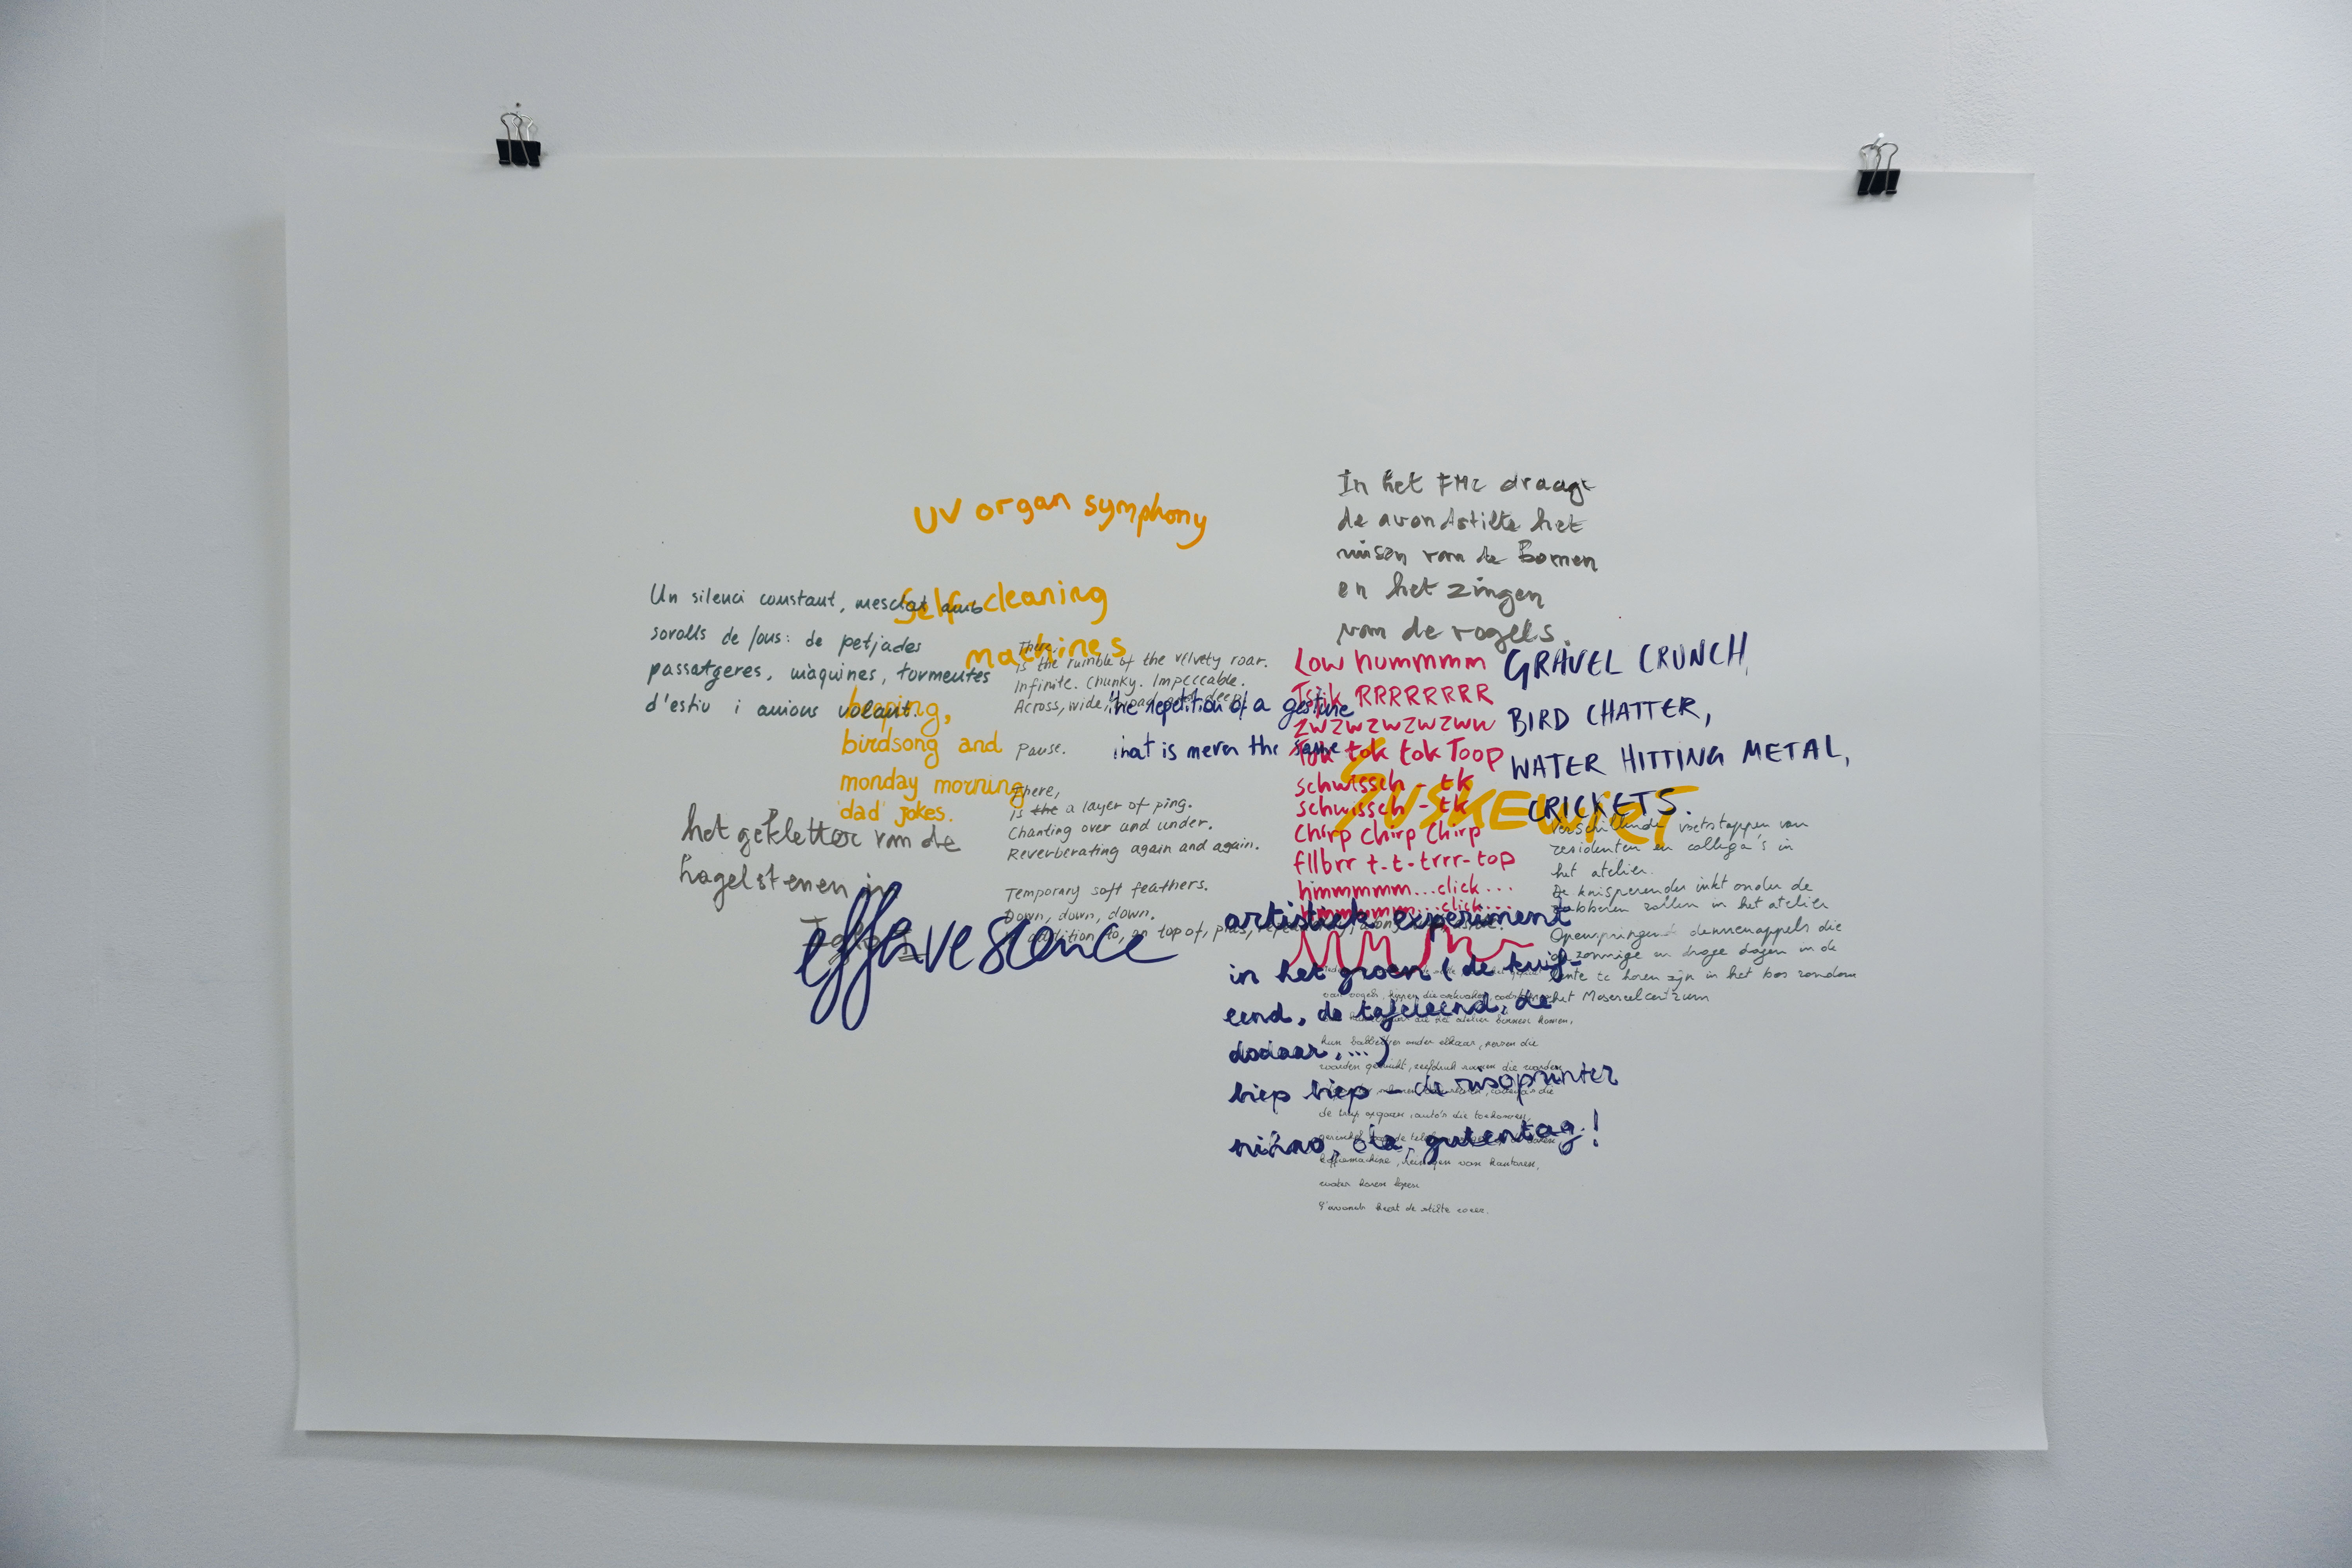 UV organ symphony
Self-cleaning
machines
beeping,
birdsong and
monday morning
'dad' jokes.
Un silenci constant, mesclat amb
sorolls de fons: de petjades
passatgeres, màquines, tormentes
d'estiu i avions volant.
het gekletter van de
hagelstenen in
effervescence
There,
is the rumble of the velvety roar.
Infinite. Chunky. Impeccable.
Across, wide, broad and deep.
Pause.
There,
is the a layer of ping.
Chanting over and under.
Reverberating again and again.
Temporary soft feathers.
Down, down, down.
addition to, on top of, plus,
the repetition of a gesture
that is never the same
In het FMC draagt
de avondstilte het
ruisen van de Bomen
en het zingen
van de vogels.
Low hummmm
Tsjik RRRRRRRR
ZWZWZWZWZWW
Tok tok tok Toop
schwissch - tk
schwissch - tk
Chirp Chirp Chirp
fllbrr t-t-trrr-top
hmmmmm...click...
hmmmmm...click...
GRAVEL CRUNCH,
BIRD CHATTER,
WATER HITTING METAL,
CRICKETS.
SUSKEWIET
Verschillende voetstappen van
residenten en collega's in
het atelier.
De knisperende inkt onder de
rubberen rollen in het atelier
Openspringende dennenappels die
op zonnige en droge dagen in de
lente te horen zijn in het bos rondom
het Masereelcentrum
artistiek experiment
in het groen (de kuif-
eend, de tafeleend, de
dodaar,...)
biep biep - de risoprinter
nihao, ola, gutentag!
van vogels, kippen die
die het atelier binnen komen,
hun babbeltjes onder elkaar, persen die
worden gebruikt, zeefdruk ramen die worden
de trap opgaan, auto's die toekomen,
koffiemachine, van kantoren,
water horen lopen
's avonds keert de stilte weer.